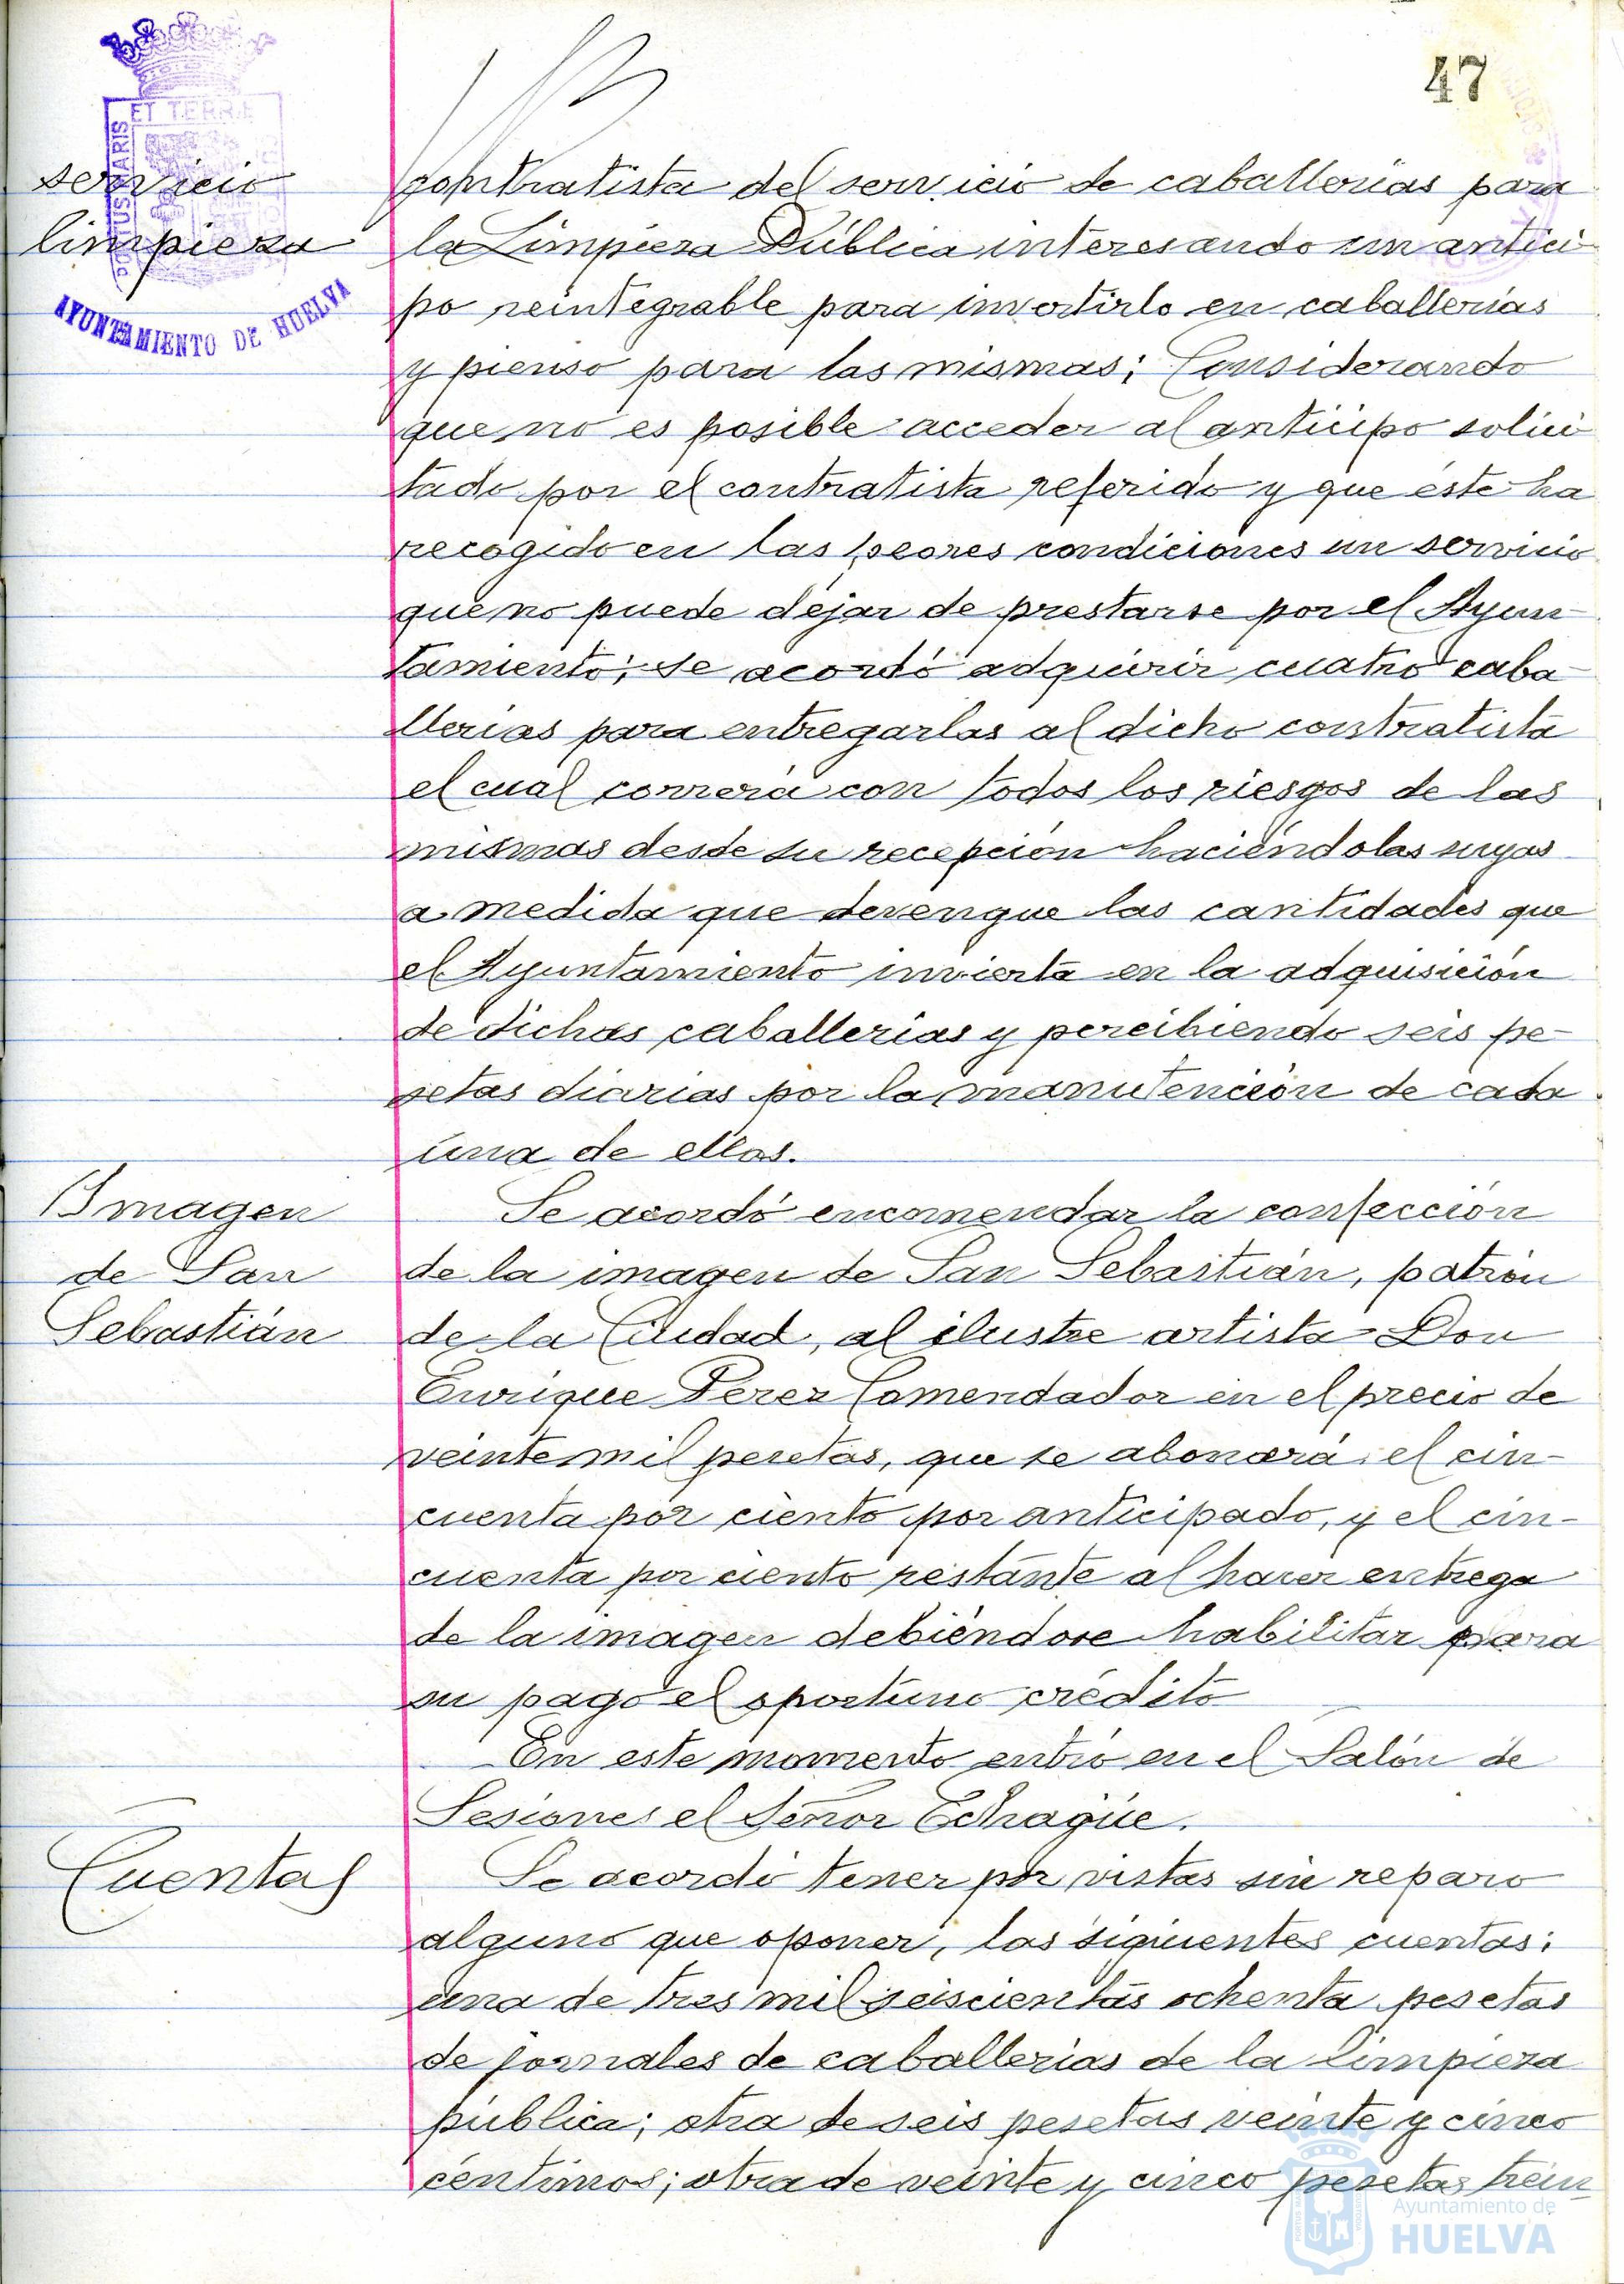 47
ET TERRÆ
PORTUS MARIS
AYUNTAMIENTO DE HUELVA
servicio
limpieza
contratista del servicio de caballerías para
la Limpieza Pública interesando un antici-
po reintegrable para invertirlo en caballerías
y pienso para las mismas; Considerando
que no es posible acceder al anticipo solici-
tado por el contratista referido y que éste ha
recogido en las peores condiciones un servicio
que no puede dejar de prestarse por el Ayun-
tamiento; se acordó adquirir cuatro caba-
llerías para entregarlas al dicho contratista
el cual correrá con todos los riesgos de las
mismas desde su recepción haciéndolas suyas
a medida que devengue las cantidades que
el Ayuntamiento invierta en la adquisición
de dichas caballerías y percibiendo seis pe-
setas diarias por la manutención de cada
una de ellas.
Imagen
de San
Sebastián
Se acordó encomendar la confección
de la imagen de San Sebastián, patrón
de la Ciudad, al ilustre artista Don
Enrique Pérez Comendador en el precio de
veinte mil pesetas, que se abonará, el cin-
cuenta por ciento por anticipado, y el cin-
cuenta por ciento restante al hacer entrega
de la imagen debiéndose habilitar para
su pago el oportuno crédito
En este momento entró en el Salón de
Sesiones el Señor Echagüe.
Cuentas
Se acordó tener por vistas sin reparo
alguno que oponer, las siguientes cuentas:
una de tres mil seiscientas ochenta pesetas
de jornales de caballerías de la limpieza
pública; otra de seis pesetas veinte y cinco
céntimos; otra de veinte y cinco pesetas trein-
Ayuntamiento de
HUELVA